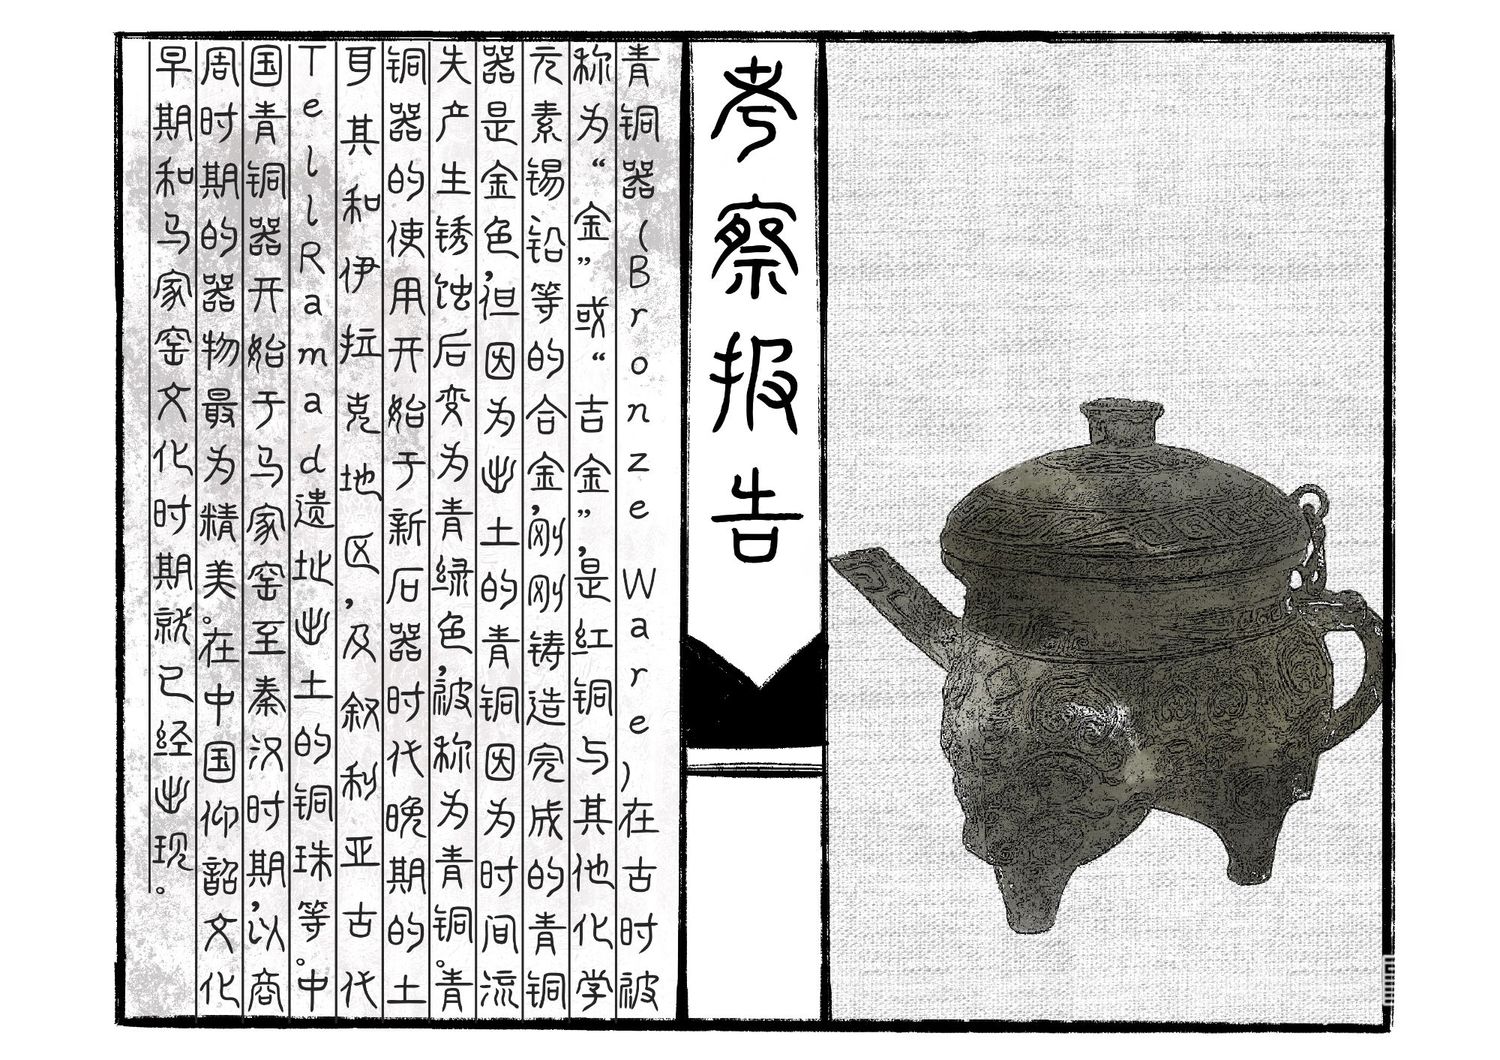 考察报告
青铜器(BronzeWare)在古时被
称为“金”或“吉金”,是红铜与其他化学
元素锡铅等的合金,刚刚铸造完成的青铜
器是金色,但因为出土的青铜因为时间流
失产生锈蚀后变为青绿色,被称为青铜。青
铜器的使用开始于新石器时代晚期的土
耳其和伊拉克地区,及叙利亚古代
TellRamad遗址出土的铜珠等。中
国青铜器开始于马家窑至秦汉时期,以商
周时期的器物最为精美。在中国仰韶文化
早期和马家窑文化时期就已经出现。